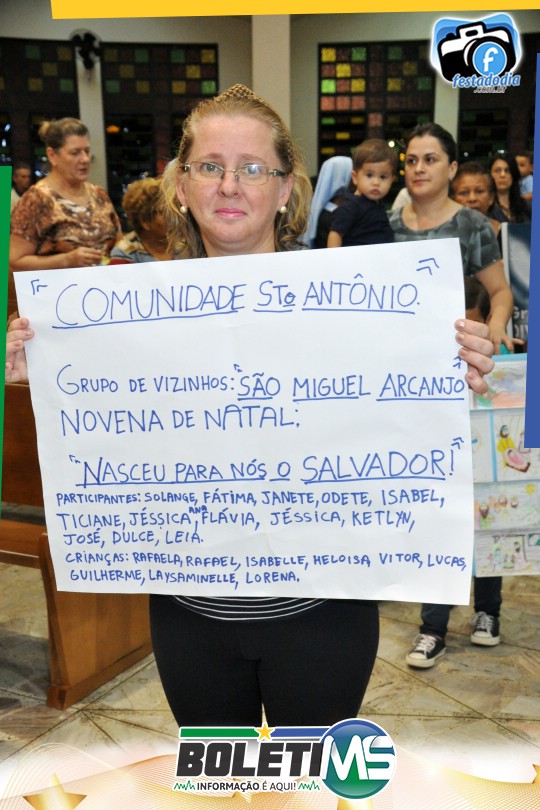 festadodia
.com.br
"COMUNIDADE STO ANTÔNIO."
GRUPO DE VIZINHOS: "SÃO MIGUEL ARCANJO"
NOVENA DE NATAL:
"NASCEU PARA NÓS O SALVADOR!"
PARTICIPANTES: SOLANGE, FÁTIMA, JANETE, ODETE, ISABEL,
TICIANE, JÉSSICA, ANA FLÁVIA, JÉSSICA, KETLYN,
JOSÉ, DULCE, LEIA.
CRIANÇAS: RAFAELA, RAFAEL, ISABELLE, HELOISA, VITOR, LUCAS,
GUILHERME, LAYSAMINELLE, LORENA.
BOLETIMS
INFORMAÇÃO É AQUI!